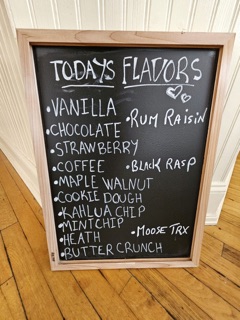 TODAYS FLAVORS
•VANILLA
•RUM RAISIN
•CHOCOLATE
•STRAWBERRY
•COFFEE
•BLACK RASP
•MAPLE WALNUT
•COOKIE DOUGH
•KAHLUA CHIP
•MINTCHIP
•HEATH
•MOOSE TRX
•BUTTER CRUNCH